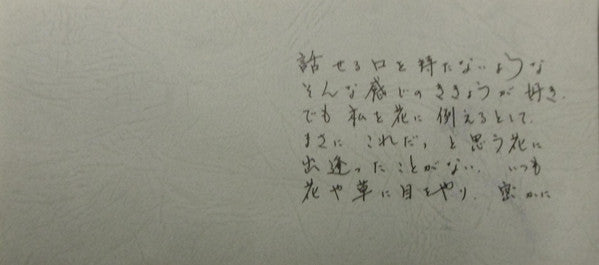 話せる口を持たないような
そんな感じのききょうが好き.
でも私を花に例えるとして.
まさにこれだっと思う花に
出逢ったことがない. いつも
花や草に目をやり. 密かに